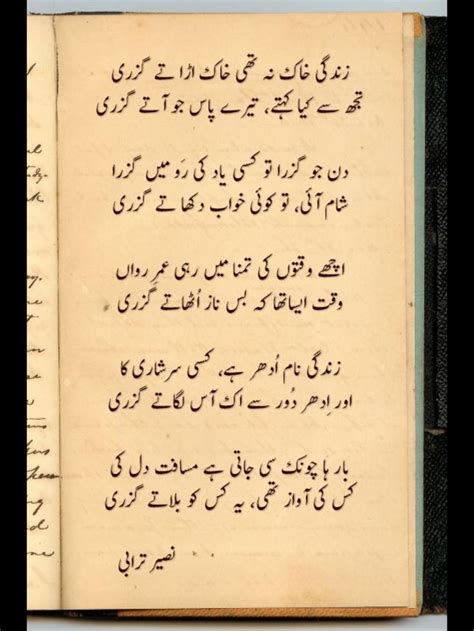 زندگی خاک نہ تھی خاک اڑاتے گزری
تجھ سے کیا کہتے، تیرے پاس جو آتے گزری
دن جو گزرا تو کسی یاد کی رَو میں گزرا
شام آئی، تو کوئی خواب دکھاتے گزری
اچھے وقتوں کی تمنا میں رہی عمرِ رواں
وقت ایسا تھا کہ بس ناز اُٹھاتے گزری
زندگی نام اُدھر ہے، کسی سرشاری کا
اور اِدھر دُور سے اک آس لگاتے گزری
بار ہا چونک سی جاتی ہے مسافت دل کی
کس کی آواز تھی، یہ کس کو بلاتے گزری
نصیر ترابی